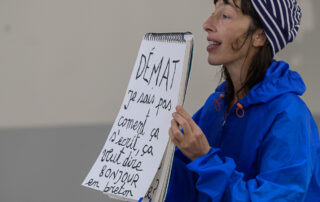 DÉMAT
je sais pas
coment ça
s'écrit, ça
veut dire
BONJOUR
en breton